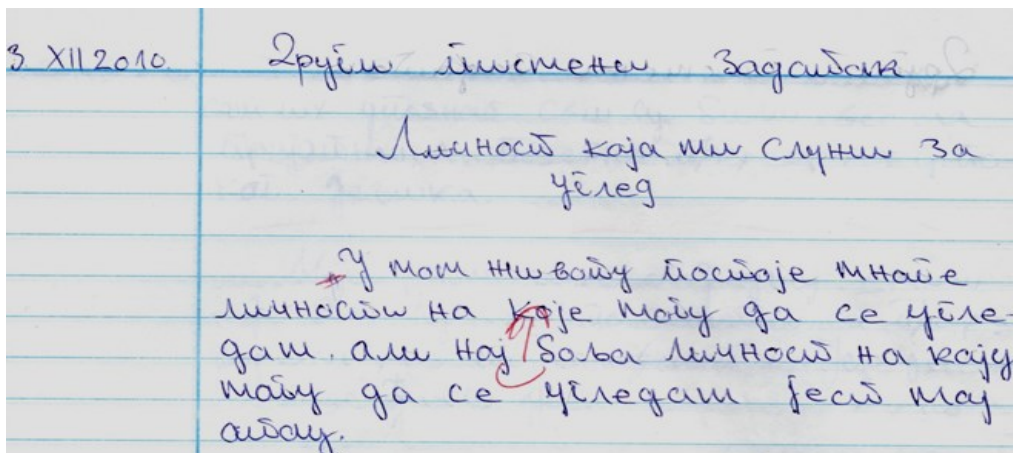 3 XII 2010. Други писмени задатак
Личност која ми служи за
углед
У мом животу постоје многе
личности на које могу да се угле-
дам, али нај боља личност на коју
могу да се угледам јест мој
отац.